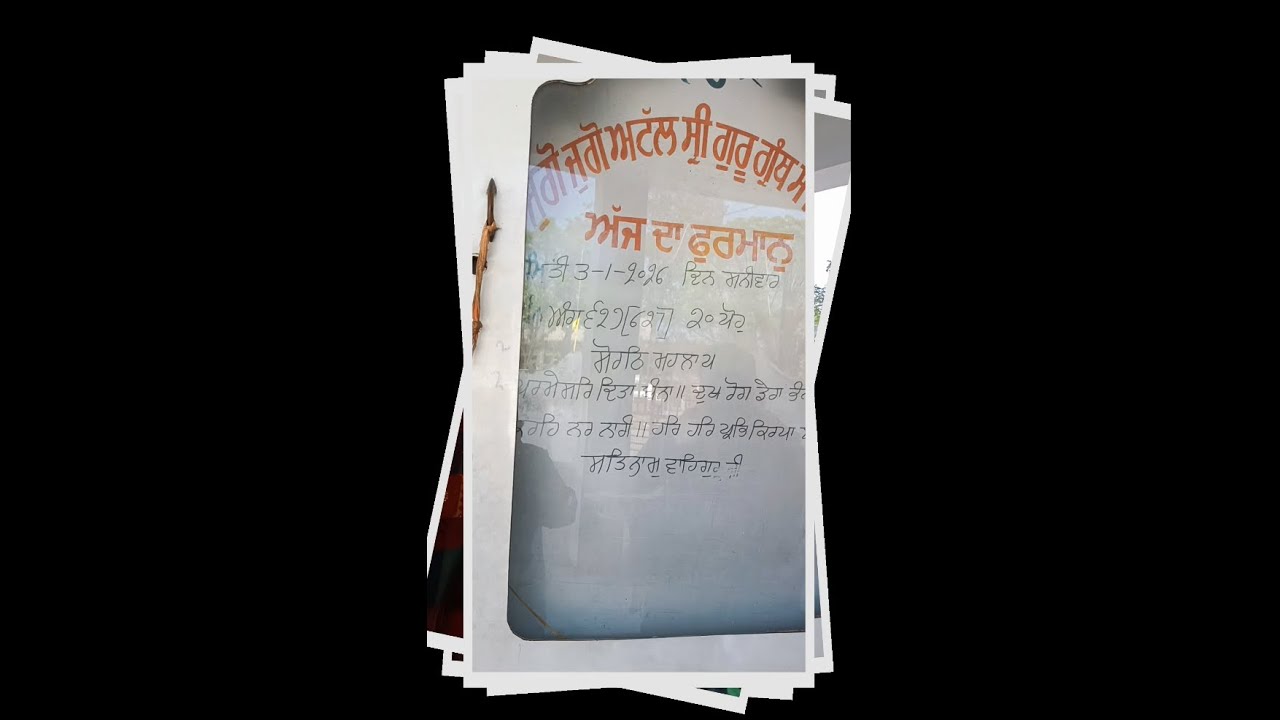 ਜੁਗੋ ਜੁਗੋ ਅਟੱਲ ਸ੍ਰੀ ਗੁਰੂ ਗ੍ਰੰਥ
ਅੱਜ ਦਾ ਫੁਰਮਾਨੁ
ਮਿਤੀ 3-1-੨੦੨੬ ਦਿਨ ਸ਼ਨੀਵਾਰ
ਅੰਗ ੬੨੭[627] ੨੦ ਪੋਹ
ਸੋਰਠਿ ਮਹਲਾ ੫
ਪਰਮੇਸਰਿ ਦਿਤਾ ਬੰਨਾ॥ ਦੁਖ ਰੋਗ ਡੇਰਾ
ਕਰਹਿ ਨਰ ਨਾਰੀ॥ ਹਰਿ ਹਰਿ ਪ੍ਰਭਿ ਕਿਰਪਾ
ਸਤਿਨਾਮੁ ਵਾਹਿਗੁਰੂ ਜੀ